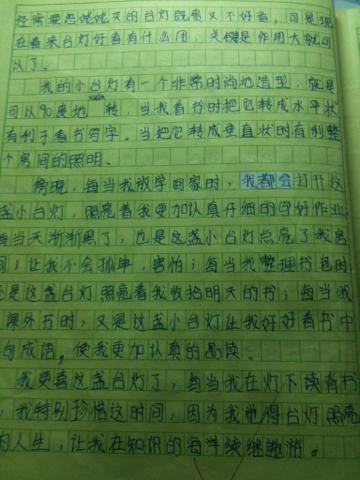 经常要想姥姥买的台灯既贵又不好看，可是现
在看来台灯好看有什么用，关键是作用大就可
以了。
我的小台灯有一个非常时尚地造型，就是
可以90度地 转，当我看书时把它转成水平状
有利于看书写字。当把它转成垂直状时有利整
个房间的照明。
傍晚，每当我放学回家时，我都会打开这
盏小台灯，照亮着我更加认真仔细的学好作业；
每当天渐渐黑了，也是这盏小台灯点亮了我房
间；让我不会孤单，害怕；每当我整理书包时
还是这盏台灯照亮着我收拾明天的书；每当我
课外书时，又是这盏小台灯让我好好看书中
的成语，使我更加认真的品读。
我更喜这盏台灯了，每当我在灯下读着书
，我特别珍惜这时间，因为我觉得台灯照亮
的人生，让我在知识的海洋续继遨游。